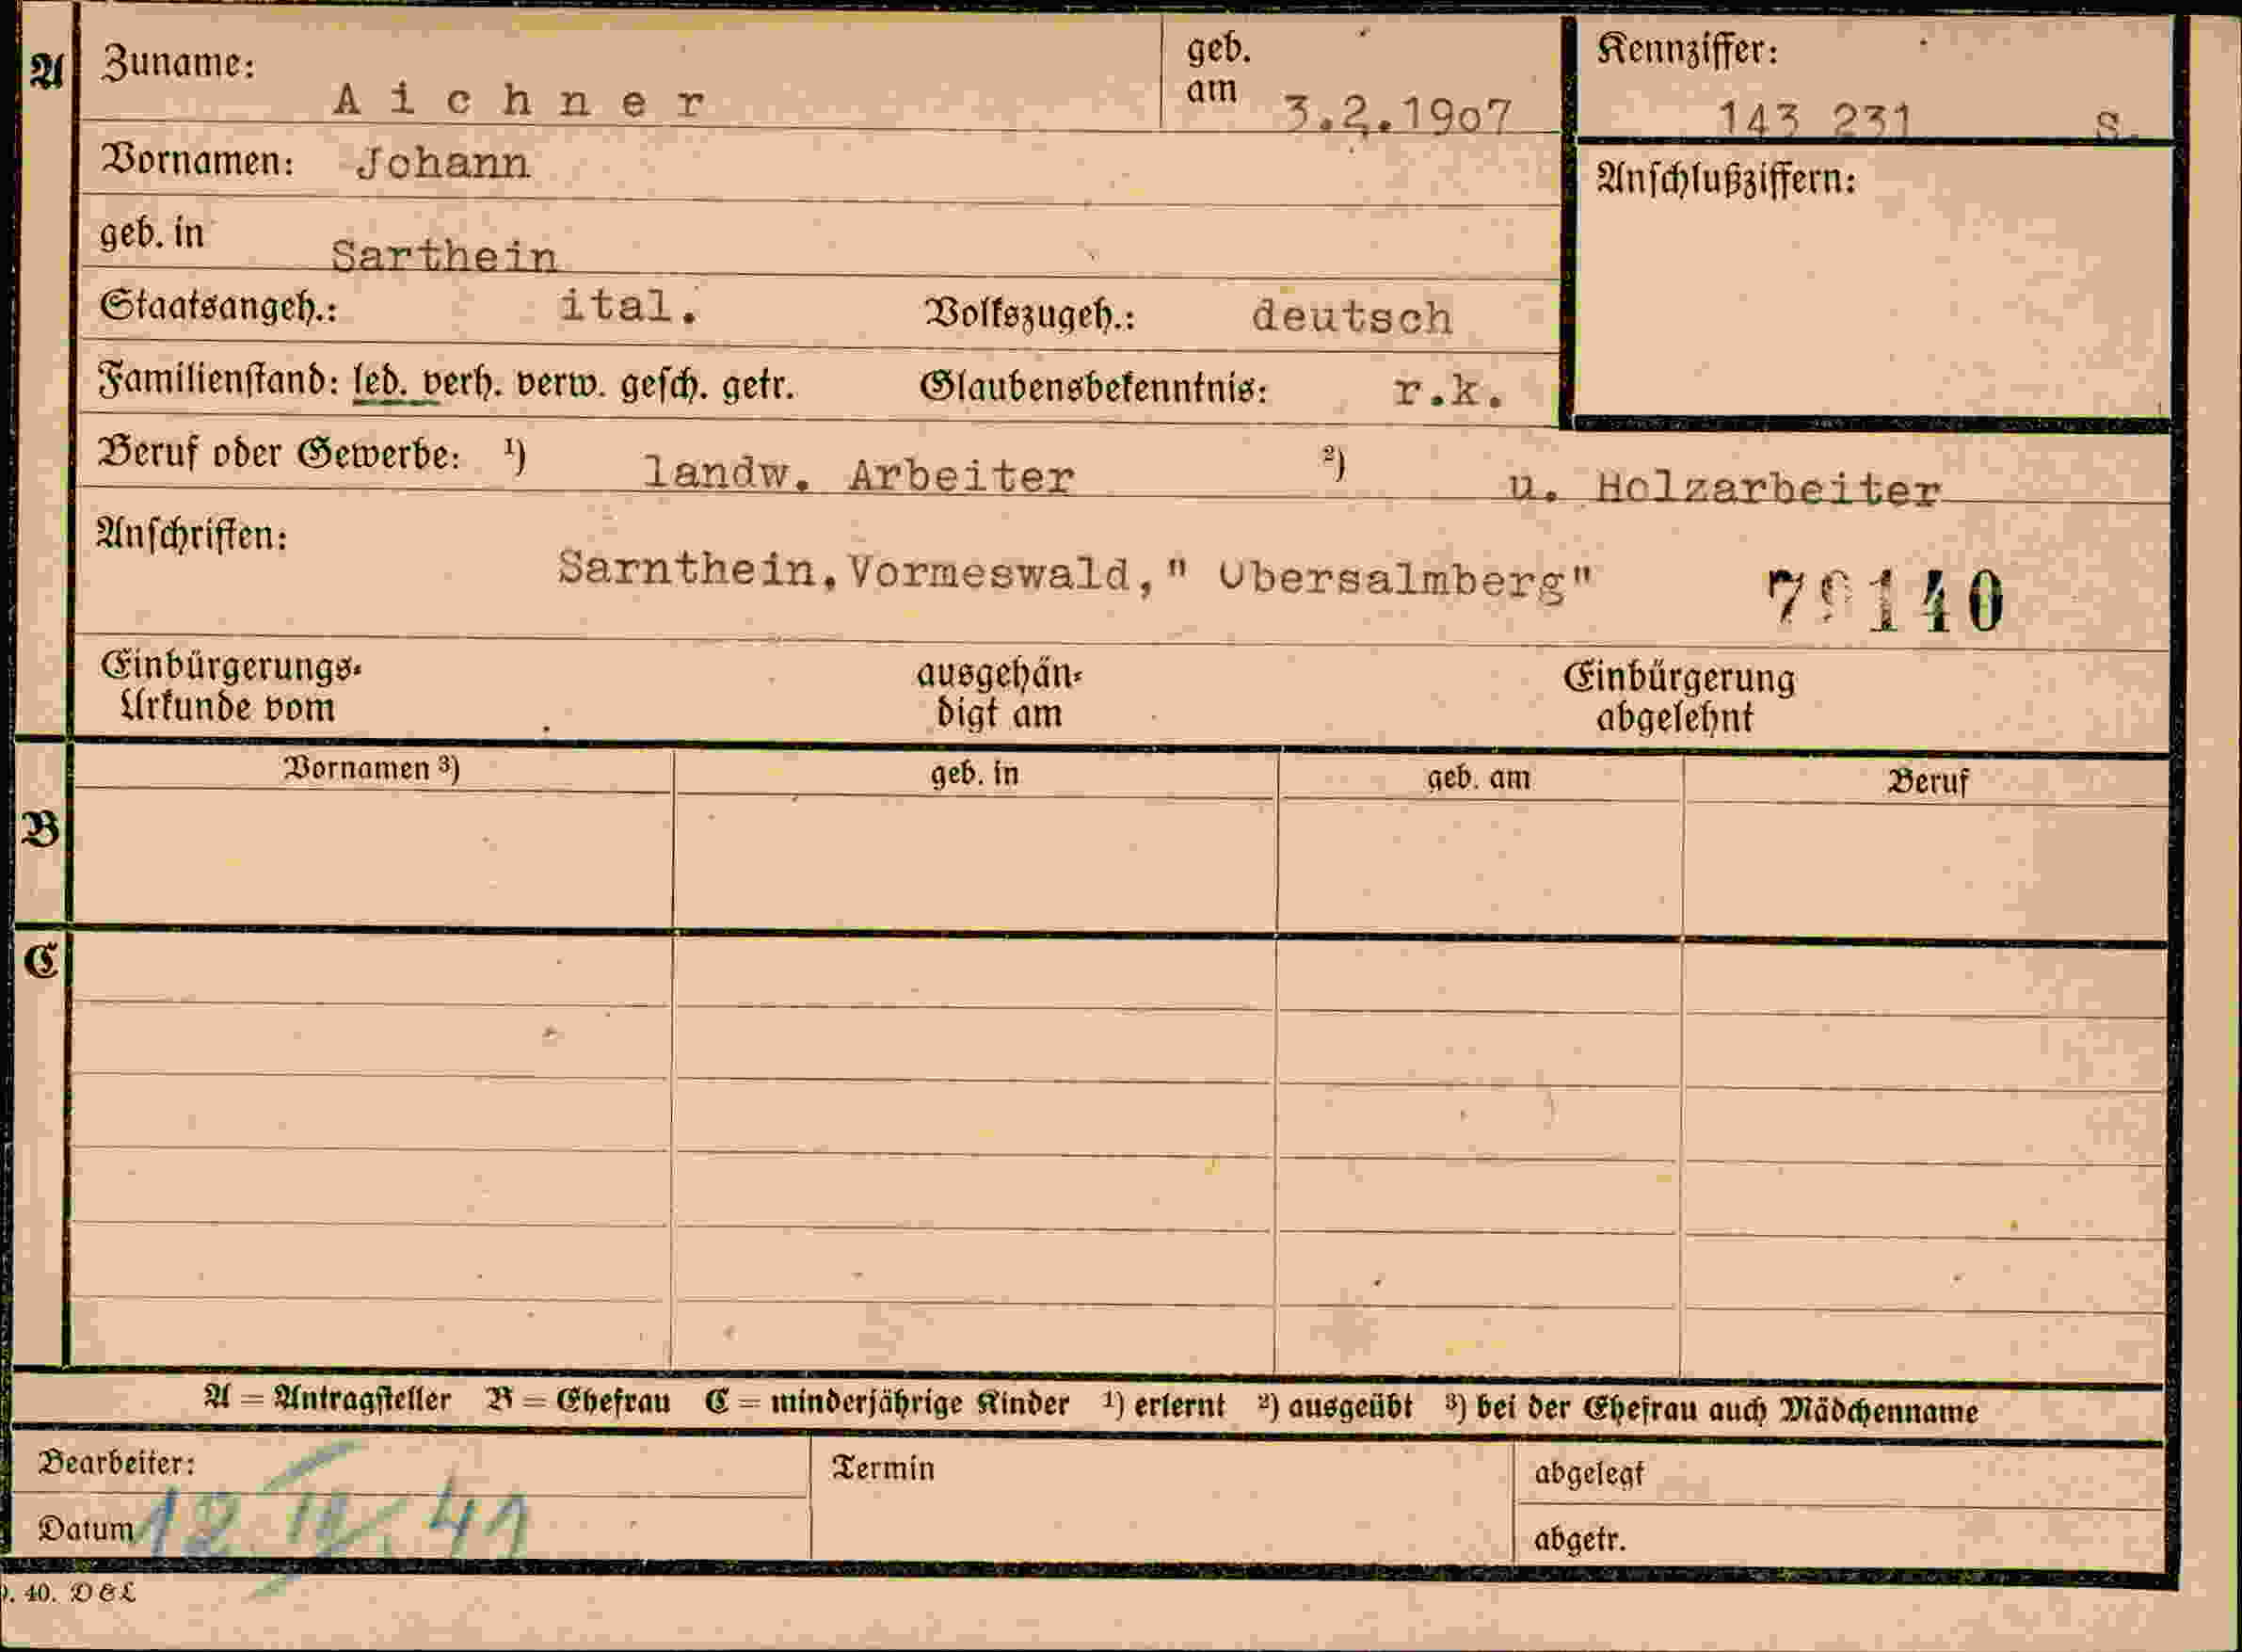 A Zuname: Aichner geb. am 3.2.1907 Kennziffer: 143 231 S.
Vornamen: Johann Anschlußziffern:
geb. in Sarthein
Staatsangeh.: ital. Volkszugeh.: deutsch
Familienstand: led. verh. verw. gesch. getr. Glaubensbekenntnis: r.k.
Beruf oder Gewerbe: 1) landw. Arbeiter 2) u. Holzarbeiter
Anschriften: Sarnthein, Vormeswald, " Obersalmberg" 79140
Einbürgerungs- ausgehän- Einbürgerung
Urkunde vom digt am abgelehnt
Vornamen 3) geb. in geb. am Beruf
B
C
A = Antragsteller B = Ehefrau C = minderjährige Kinder 1) erlernt 2) ausgeübt 3) bei der Ehefrau auch Mädchenname
Bearbeiter: Termin abgelegt
Datum 41 abgetr.
40. D & L